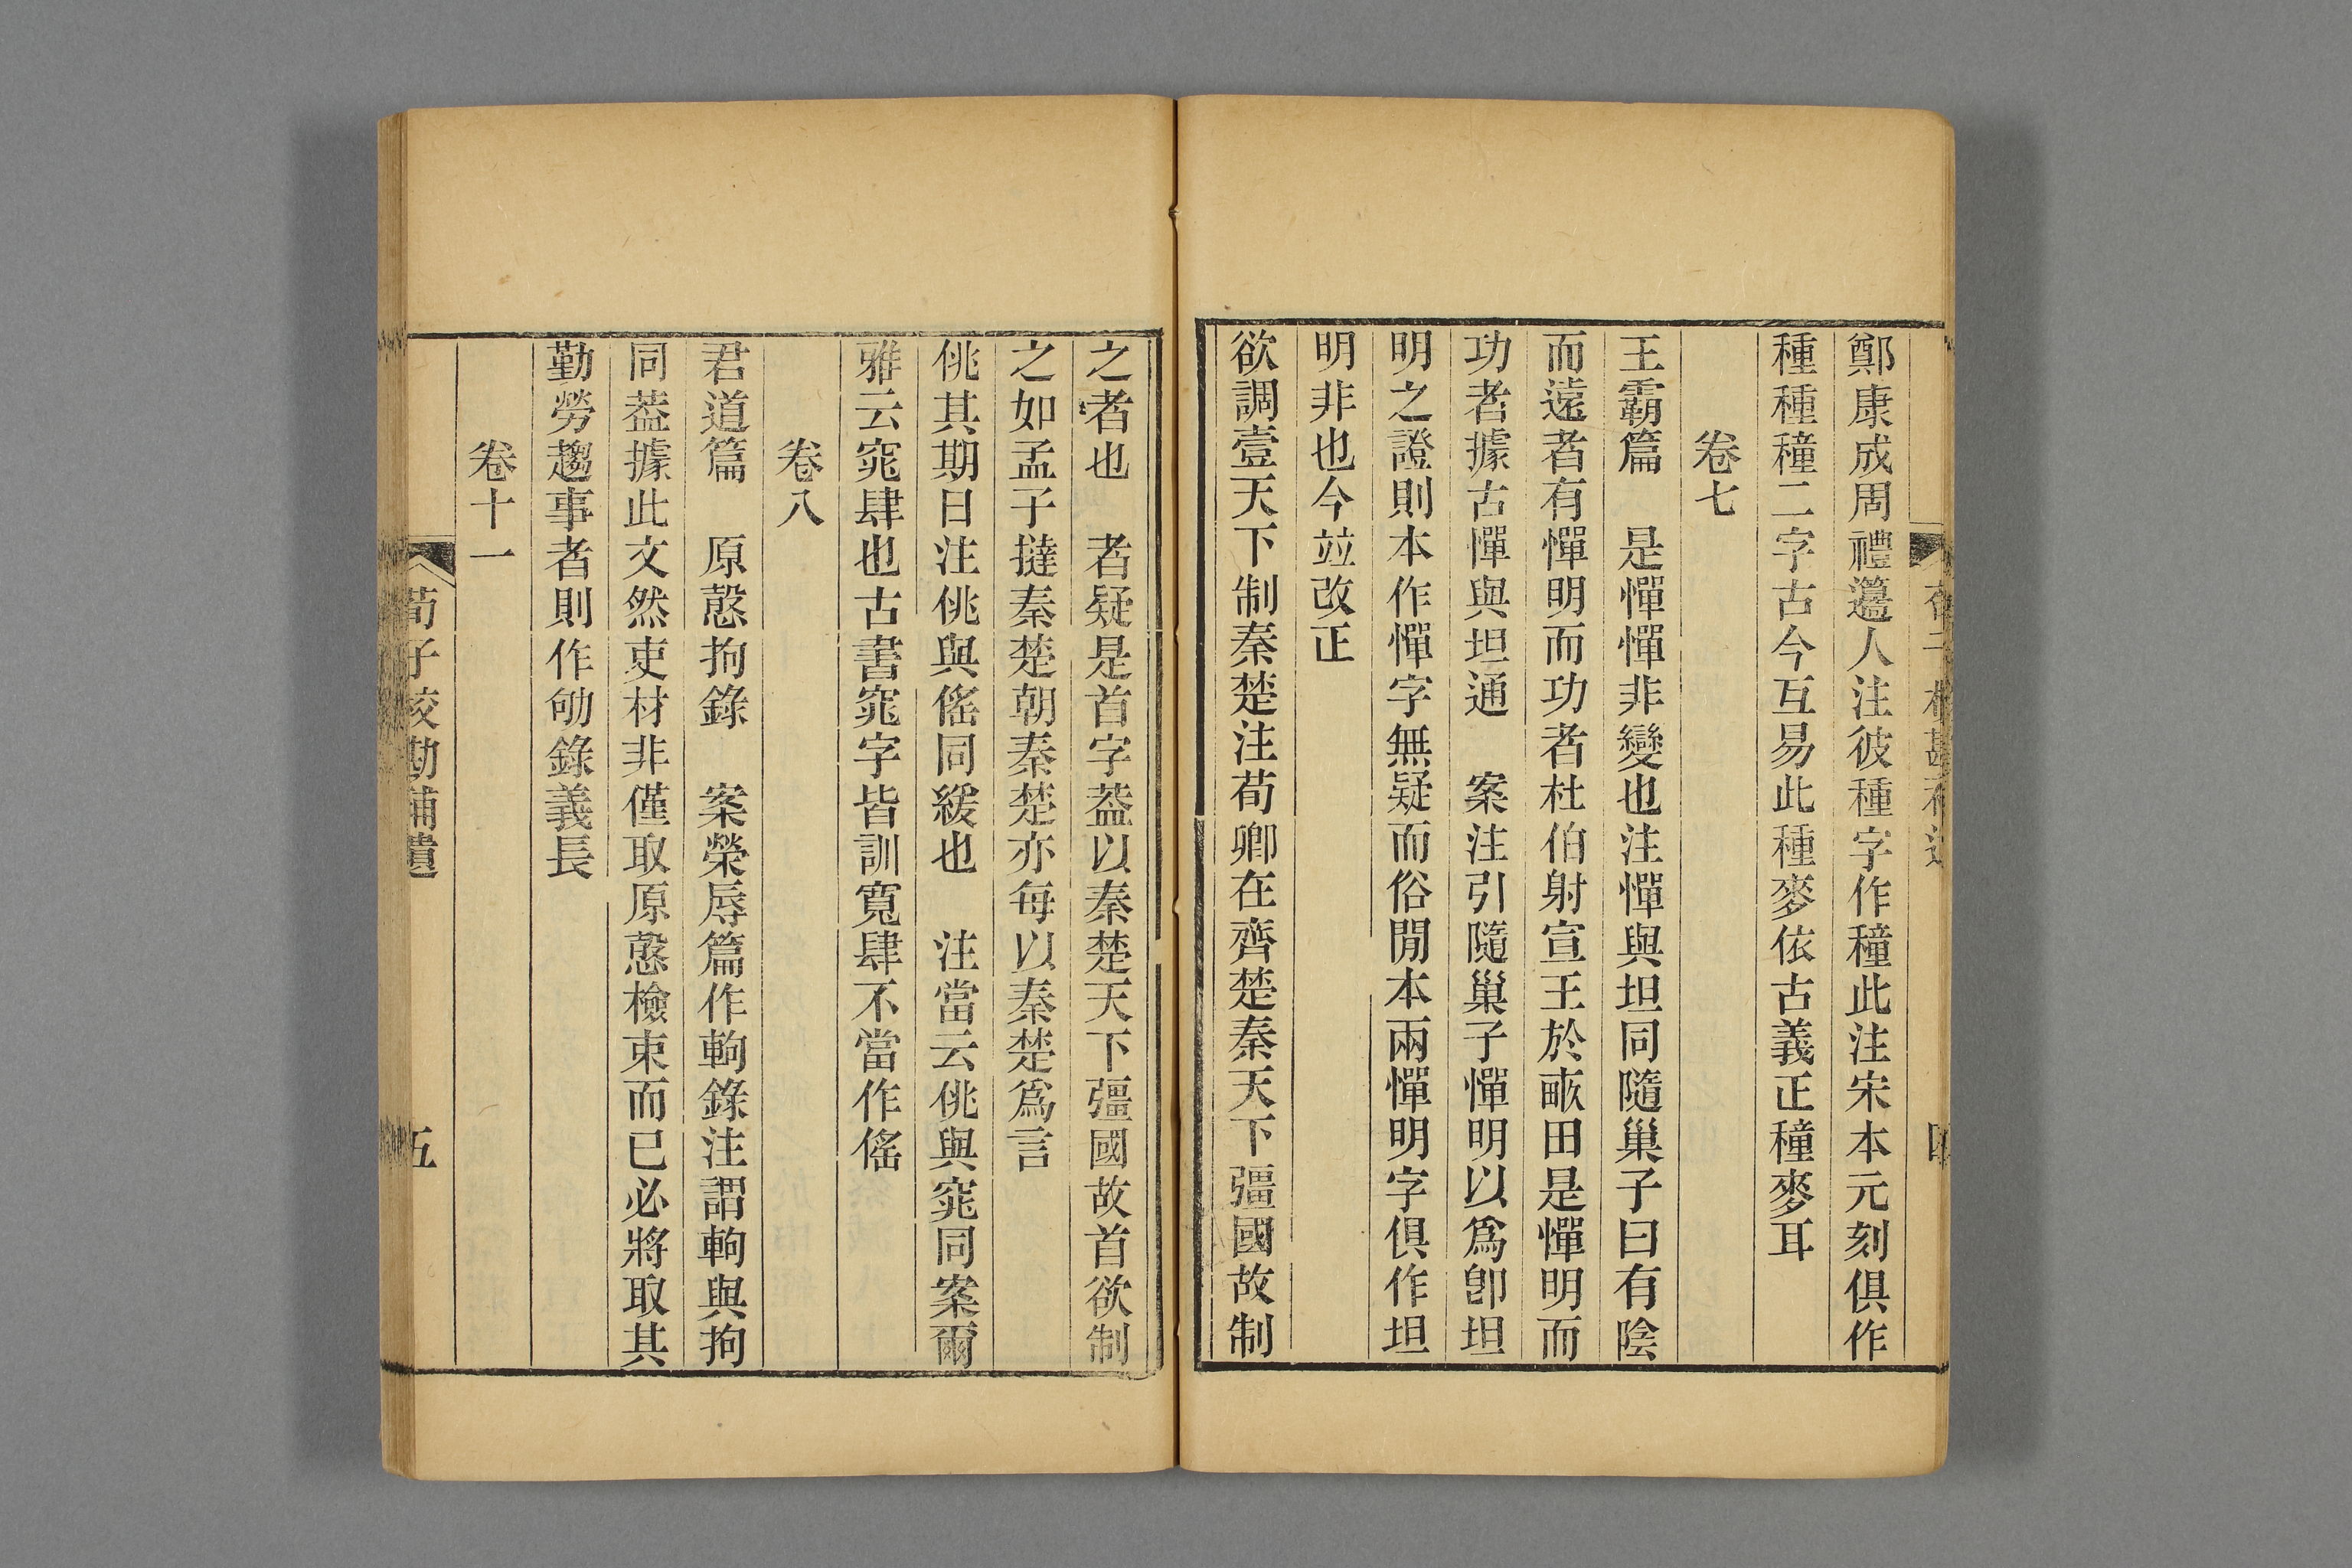 鄭康成周禮籩人注彼種字作穜此注宋本元刻俱作
種種穜二字古今互易此種麥依古義正穜麥耳
卷七
王霸篇　是憚憚非變也注憚與坦同隨巢子曰有陰
而遠者有憚明而功者杜伯射宣王於畞田是憚明而
功者據古憚與坦通　案注引隨巢子憚明以爲卽坦
明之證則本作憚字無疑而俗閒本兩憚明字俱作坦
明非也今竝改正
欲調壹天下制秦楚注荀卿在齊楚秦天下彊國故制
之者也　者疑是首字葢以秦楚天下彊國故首欲制
之如孟子撻秦楚朝秦楚亦每以秦楚爲言
佻其期日注佻與傜同緩也　注當云佻與窕同案爾
雅云窕肆也古書窕字皆訓寬肆不當作傜
卷八
君道篇　原慤拘錄　案榮辱篇作軥錄注謂軥與拘
同葢據此文然吏材非僅取原慤檢束而已必將取其
勤勞趨事者則作劬錄義長
卷十一
荀子校勘補遺
五